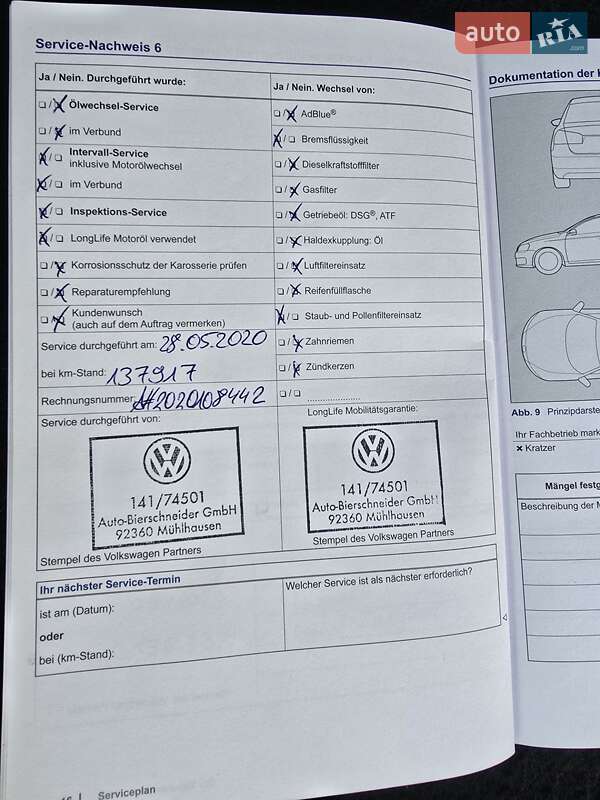 auto RIA.com
Service-Nachweis 6
Ja / Nein. Durchgeführt wurde:
❑ / ❑ Ölwechsel-Service
❑ / ❑ im Verbund
❑ / ❑ Intervall-Service
inklusive Motorölwechsel
❑ / ❑ im Verbund
❑ / ❑ Inspektions-Service
❑ / ❑ LongLife Motoröl verwendet
❑ / ❑ Korrosionsschutz der Karosserie prüfen
❑ / ❑ Reparaturempfehlung
❑ / ❑ Kundenwunsch
(auch auf dem Auftrag vermerken)
Service durchgeführt am: 28.05.2020
bei km-Stand: 137917
Rechnungsnummer: AH2020108442
Service durchgeführt von:
141/74501
Auto-Bierschneider GmbH
92360 Mühlhausen
Stempel des Volkswagen Partners
Ja / Nein. Wechsel von:
❑ / ❑ AdBlue®
❑ / ❑ Bremsflüssigkeit
❑ / ❑ Dieselkraftstofffilter
❑ / ❑ Gasfilter
❑ / ❑ Getriebeöl: DSG®, ATF
❑ / ❑ Haldexkupplung: Öl
❑ / ❑ Luftfiltereinsatz
❑ / ❑ Reifenfüllflasche
❑ / ❑ Staub- und Pollenfiltereinsatz
❑ / ❑ Zahnriemen
❑ / ❑ Zündkerzen
❑ / ❑ .....................
LongLife Mobilitätsgarantie:
141/74501
Auto-Bierschneider GmbH
92360 Mühlhausen
Stempel des Volkswagen Partners
Ihr nächster Service-Termin
ist am (Datum):
oder
bei (km-Stand):
Welcher Service ist als nächster erforderlich?
Serviceplan
Dokumentation der
Abb. 9 Prinzipdarste
Ihr Fachbetrieb mark
× Kratzer
Mängel festg
Beschreibung der M